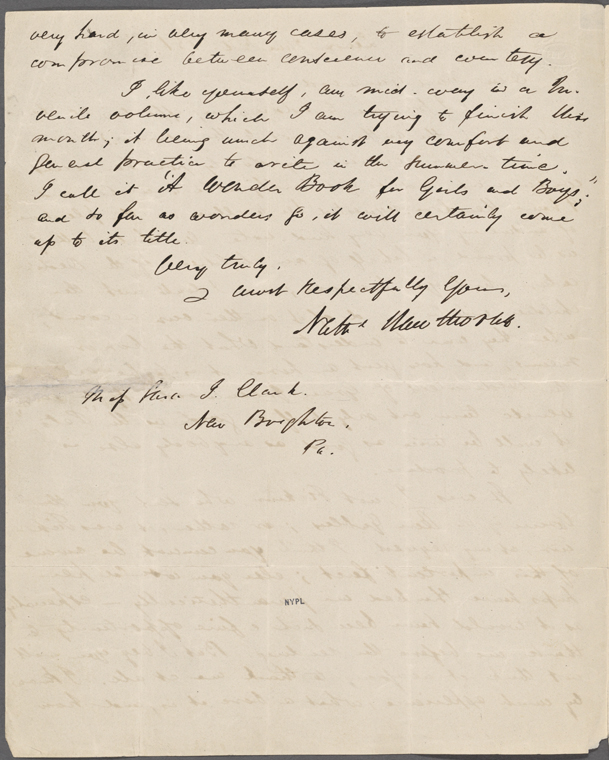 very hard, in very many cases, to establish a
compromise between conscience and courtesy.
I, like yourself, am mid-way in a Ju-
venile volume, which I am trying to finish this
month; it being much against my comfort and
general practice to write in the summer-time.
I call it "A Wonder Book for Girls and Boys;"
and so far as wonders go, it will certainly come
up to its title.
Very truly,
& most Respectfully Yours,
Nathl Hawthorne.
Miss Sara J. Clark.
New Brighton,
Pa.
NYPL